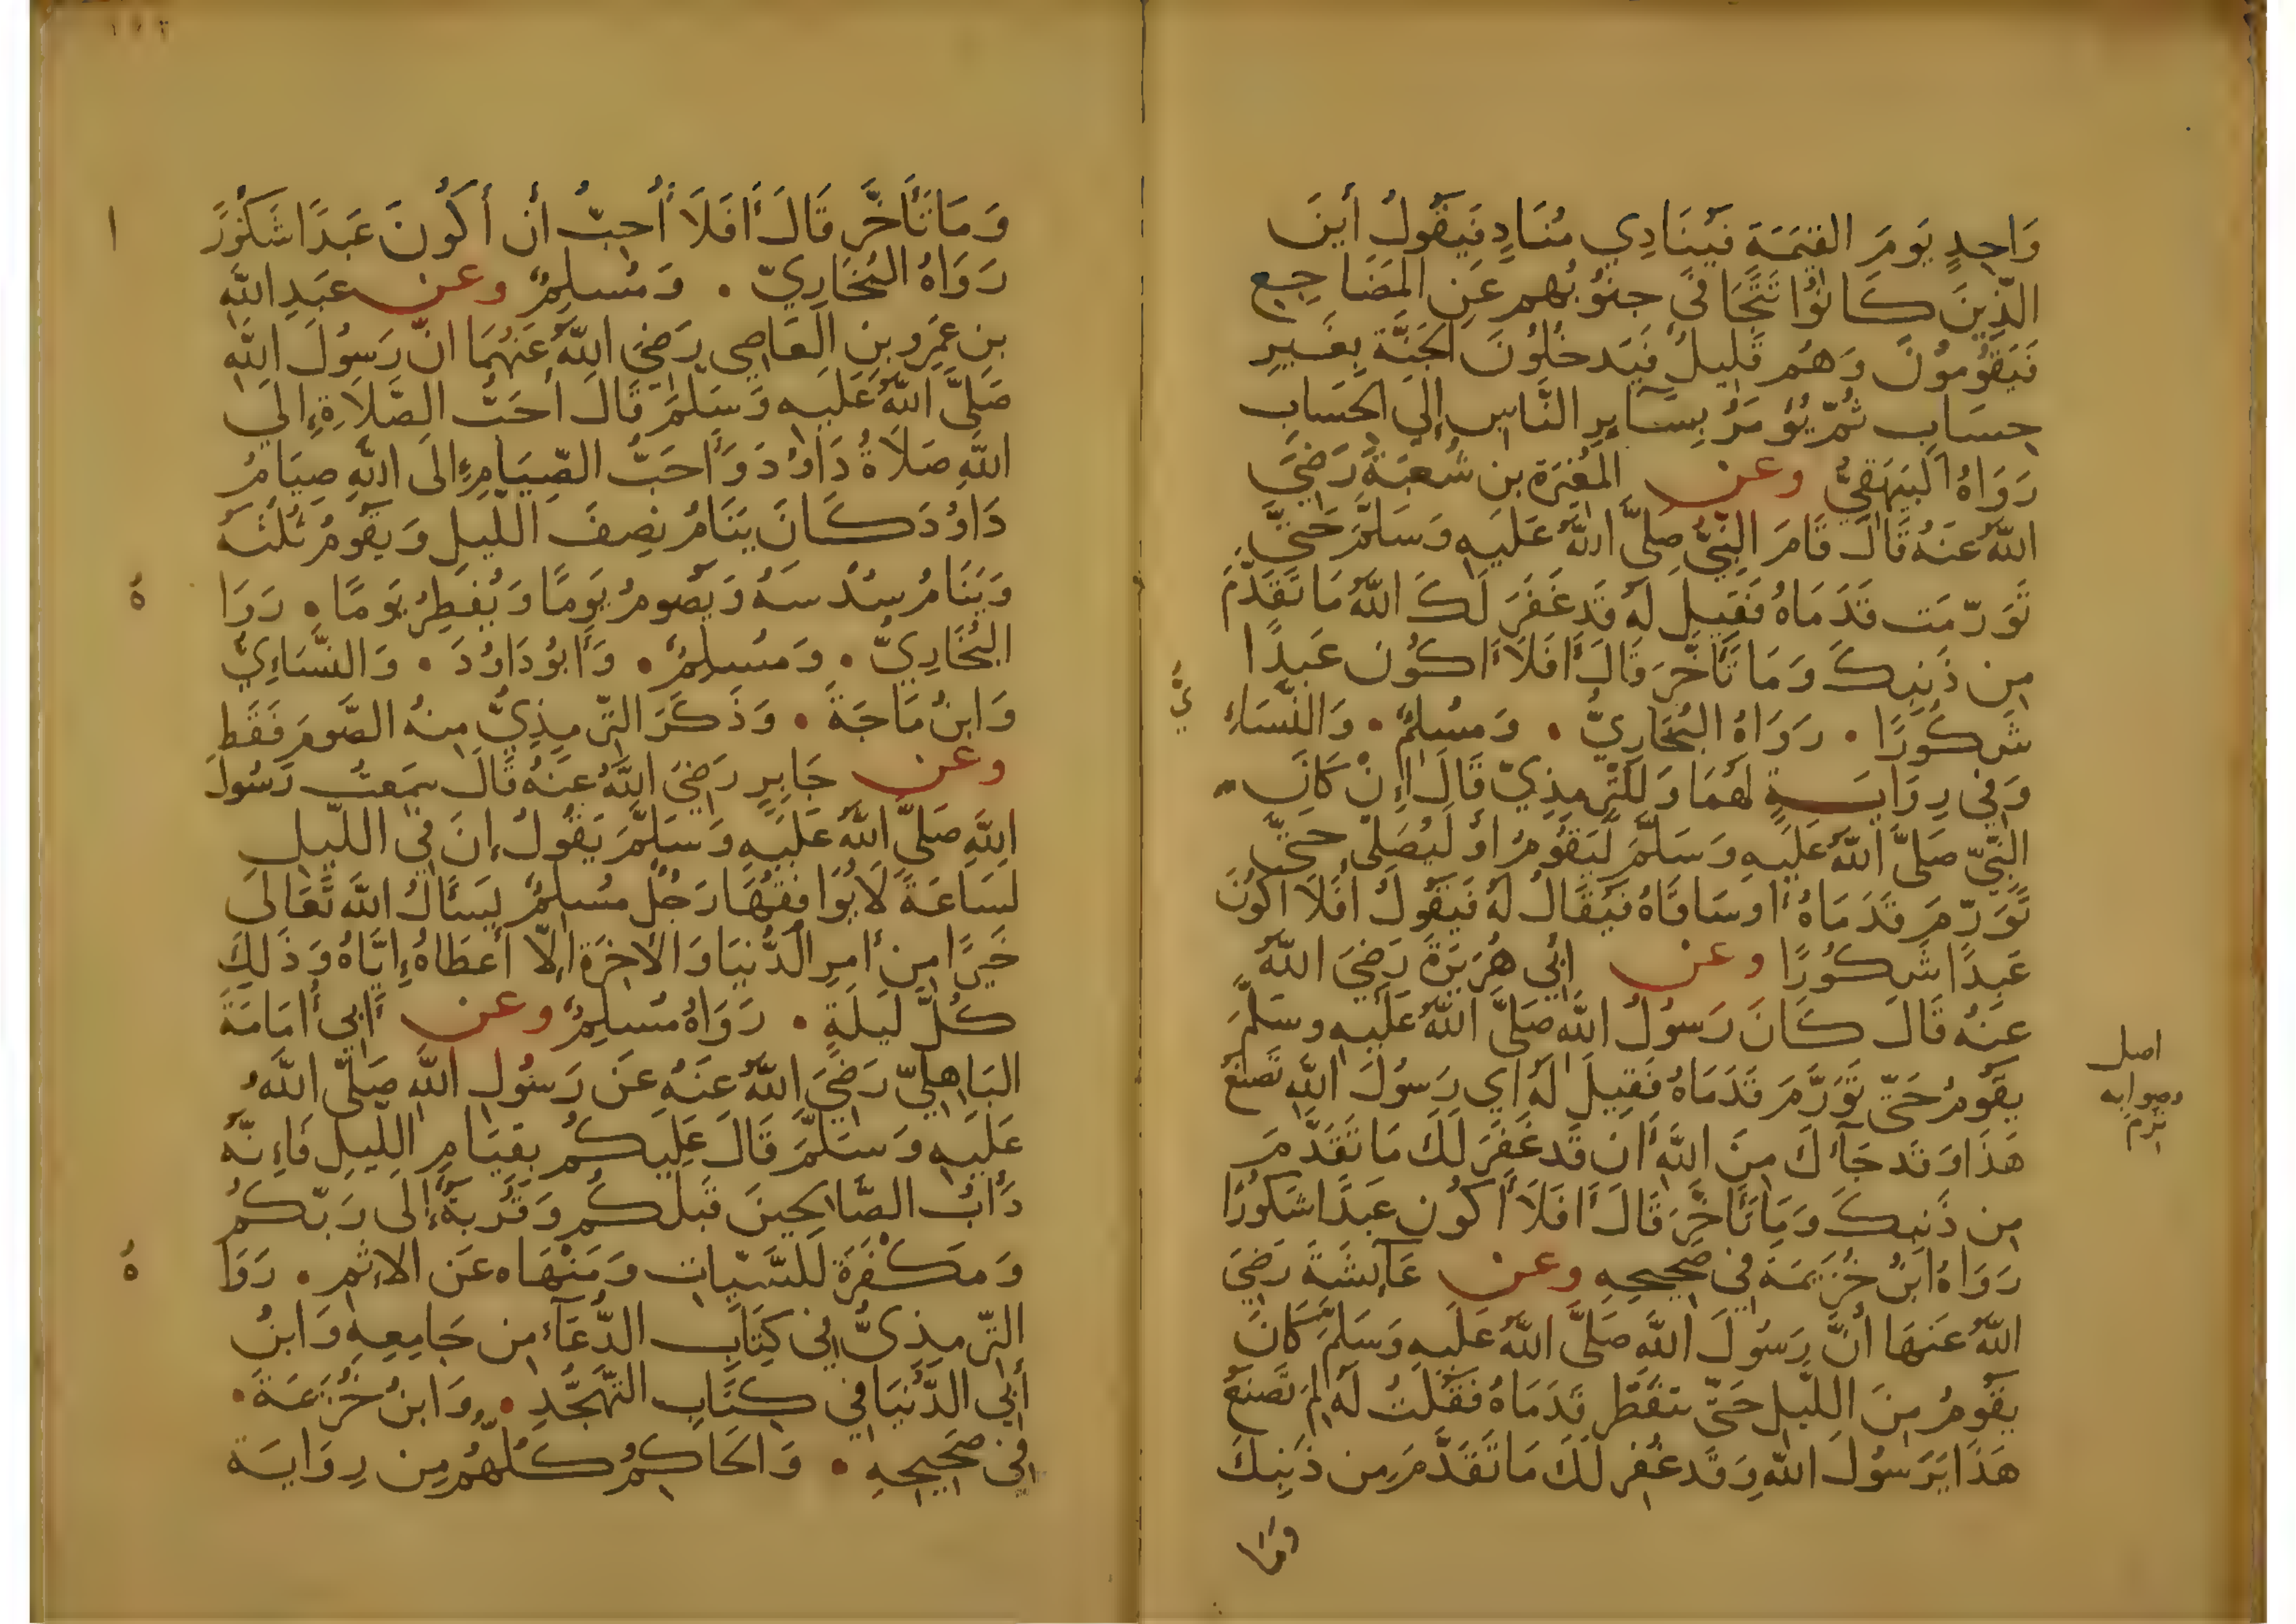 وَاحِدٍ يَومَ القِيٰمَةِ فَيُنَادِي مُنَادٍ فَيَقُولُ أَينَ
الَّذِينَ كَانُوا تَتَجَافَى جُنُوبُهُم عَنِ المَضَاجِعِ
فَيَقُومُونَ وَهُم قَلِيلٌ فَيَدخُلُونَ الجَنَّةَ بِغَيرِ
حِسَابٍ ثُمَّ يُؤمَرُ بِسَآيِرِ النَّاسِ إِلَى الحِسَابِ
رَوَاهُ البَيهَقِيُّ وعن المُغِيرَةِ بنِ شُعبَةَ رَضِيَ
اللَّهُ عَنهُ قَالَ قَامَ النَّبِيُّ صَلَّى اللَّهُ عَلَيهِ وَسَلَّمَ حَتَّى
تَوَرَّمَت قَدَمَاهُ فَقِيلَ لَهُ قَد غَفَرَ لَكَ اللَّهُ مَا تَقَدَّمَ
مِن ذَنبِكَ وَمَا تَأَخَّرَ قَالَ أَفَلَا أَكُونُ عَبدًا
شَكُورًا . رَوَاهُ البُخَارِيُّ . وَمُسلِمٌ . وَالنَّسَاءِ
يُّ
وَفِي رِوَايَةٍ لَهُمَا وَلِلتِّرمِذِيِّ قَالَ إِنْ كَانَ
النَّبِيُّ صَلَّى اللَّهُ عَلَيهِ وَسَلَّمَ لَيَقُومُ أَو لَيُصَلِّي حَتَّى
تَوَرَّمَ قَدَمَاهُ أَو سَاقَاهُ فَيُقَالُ لَهُ فَيَقُولُ أَفَلَا أَكُونُ
عَبدًا شَكُورًا وعن أَبِي هُرَيرَةَ رَضِيَ اللَّهُ
عَنهُ قَالَ كَانَ رَسُولُ اللَّهِ صَلَّى اللَّهُ عَلَيهِ وسَلَّمَ
يَقُومُ حَتَّى تَوَرَّمَ قَدَمَاهُ فَقِيلَ لَهُ أَي رَسُولَ اللَّهِ تَصنَعُ
هَذَا وَقَد جَآءَكَ مِنَ اللَّهِ أَن قَد غَفَرَ لَكَ مَا تَقَدَّمَ
مِن ذَنبِكَ وَمَا تَأَخَّرَ قَالَ أَفَلَا أَكُونُ عَبدًا شَكُورًا
رَوَاهُ ابنُ خُزَيمَةَ فِي صَحِيحِهِ وعن عَآيِشَةَ رَضِيَ
اللَّهُ عَنهَا أَنَّ رَسُولَ اللَّهِ صَلَّى اللَّهُ عَلَيهِ وَسَلَّمَ كَانَ
يَقُومُ مِنَ اللَّيلِ حَتَّى تَنفَطِرَ قَدَمَاهُ فَقُلتُ لَهُ لِمَ تَصنَعُ
هَذَا يَرَسُولَ اللَّهِ وَقَد غُفِرَ لَكَ مَا تَقَدَّمَ مِن ذَنبِكَ
وَمَا
اصل
وصوابه
ترم
وَمَا تَأَخَّرَ قَالَ أَفَلَا أُحِبُّ أَن أَكُونَ عَبدًا شَكُورً
ا
رَوَاهُ البُخَارِيُّ . وَمُسلِمٌ وعن عَبدِ اللَّهِ
بنِ عَمرِو بنِ العَاصِي رَضِيَ اللَّهُ عَنهُمَا انَّ رَسُولَ اللَّهِ
صَلَّى اللَّهُ عَلَيهِ وَسَلَّمَ قَالَ أَحَبُّ الصَّلَاةِ إِلَى
اللَّهِ صَلَاةُ دَاوُدَ وَأَحَبُّ الصِّيَامِ إِلَى اللَّهِ صِيَامُ
دَاوُدَ كَانَ يَنَامُ نِصفَ اللَّيلِ وَيَقُومُ ثُلُثَهُ
وَيَنَامُ سُدُسَهُ وَيَصُومُ يَومًا وَيُفطِرُ يَومًا . رَوَا
هُ
البُخَارِيُّ . وَمُسلِمٌ . وَأَبُو دَاوُدَ . وَالنَّسَاءِيُّ
وَابنُ مَاجَةَ . وَذَكَرَ التِّرمِذِيُّ مِنهُ الصَّومَ فَقَط
وعن جَابِرٍ رَضِيَ اللَّهُ عَنهُ قَالَ سَمِعتُ رَسُولَ
اللَّهِ صَلَّى اللَّهُ عَلَيهِ وَسَلَّمَ يَقُولُ إِنَّ فِي اللَّيلِ
لَسَاعَةً لَا يُوَافِقُهَا رَجُلٌ مُسلِمٌ يَسأَلُ اللَّهَ تَعَالَى
خَيرًا مِن أَمرِ الدُّنيَا وَالآخِرَةِ إِلَّا أَعطَاهُ إِيَّاهُ وَذَلِكَ
كُلَّ لَيلَةٍ . رَوَاهُ مُسلِمٌ وعن أَبِي أُمَامَةَ
البَاهِلِيِّ رَضِيَ اللَّهُ عَنهُ عَن رَسُولِ اللَّهِ صَلَّى اللَّهُ
عَلَيهِ وَسَلَّمَ قَالَ عَلَيكُم بِقِيَامِ اللَّيلِ فَإِنَّهُ
دَأبُ الصَّالِحِينَ قَبلَكُم وَقُربَةٌ إِلَى رَبِّكُم
وَمَكفَرَةٌ لِلسَّيِّيَاتِ وَمَنهَاه عَنِ الاِثمِ . رَوَا
هُ
التِّرمِذِيُّ فِي كِتَابِ الدُّعَآءِ مِن جَامِعِهِ وَابنُ
أَبِي الدُّنيَا فِي كِتَابِ التَّهَجُّدِ . وَابنُ خُزَيمَةَ .
فِي صَحِيحِهِ . وَالحَاكِمُ كُلُّهُم مِن رِوَايَةِ